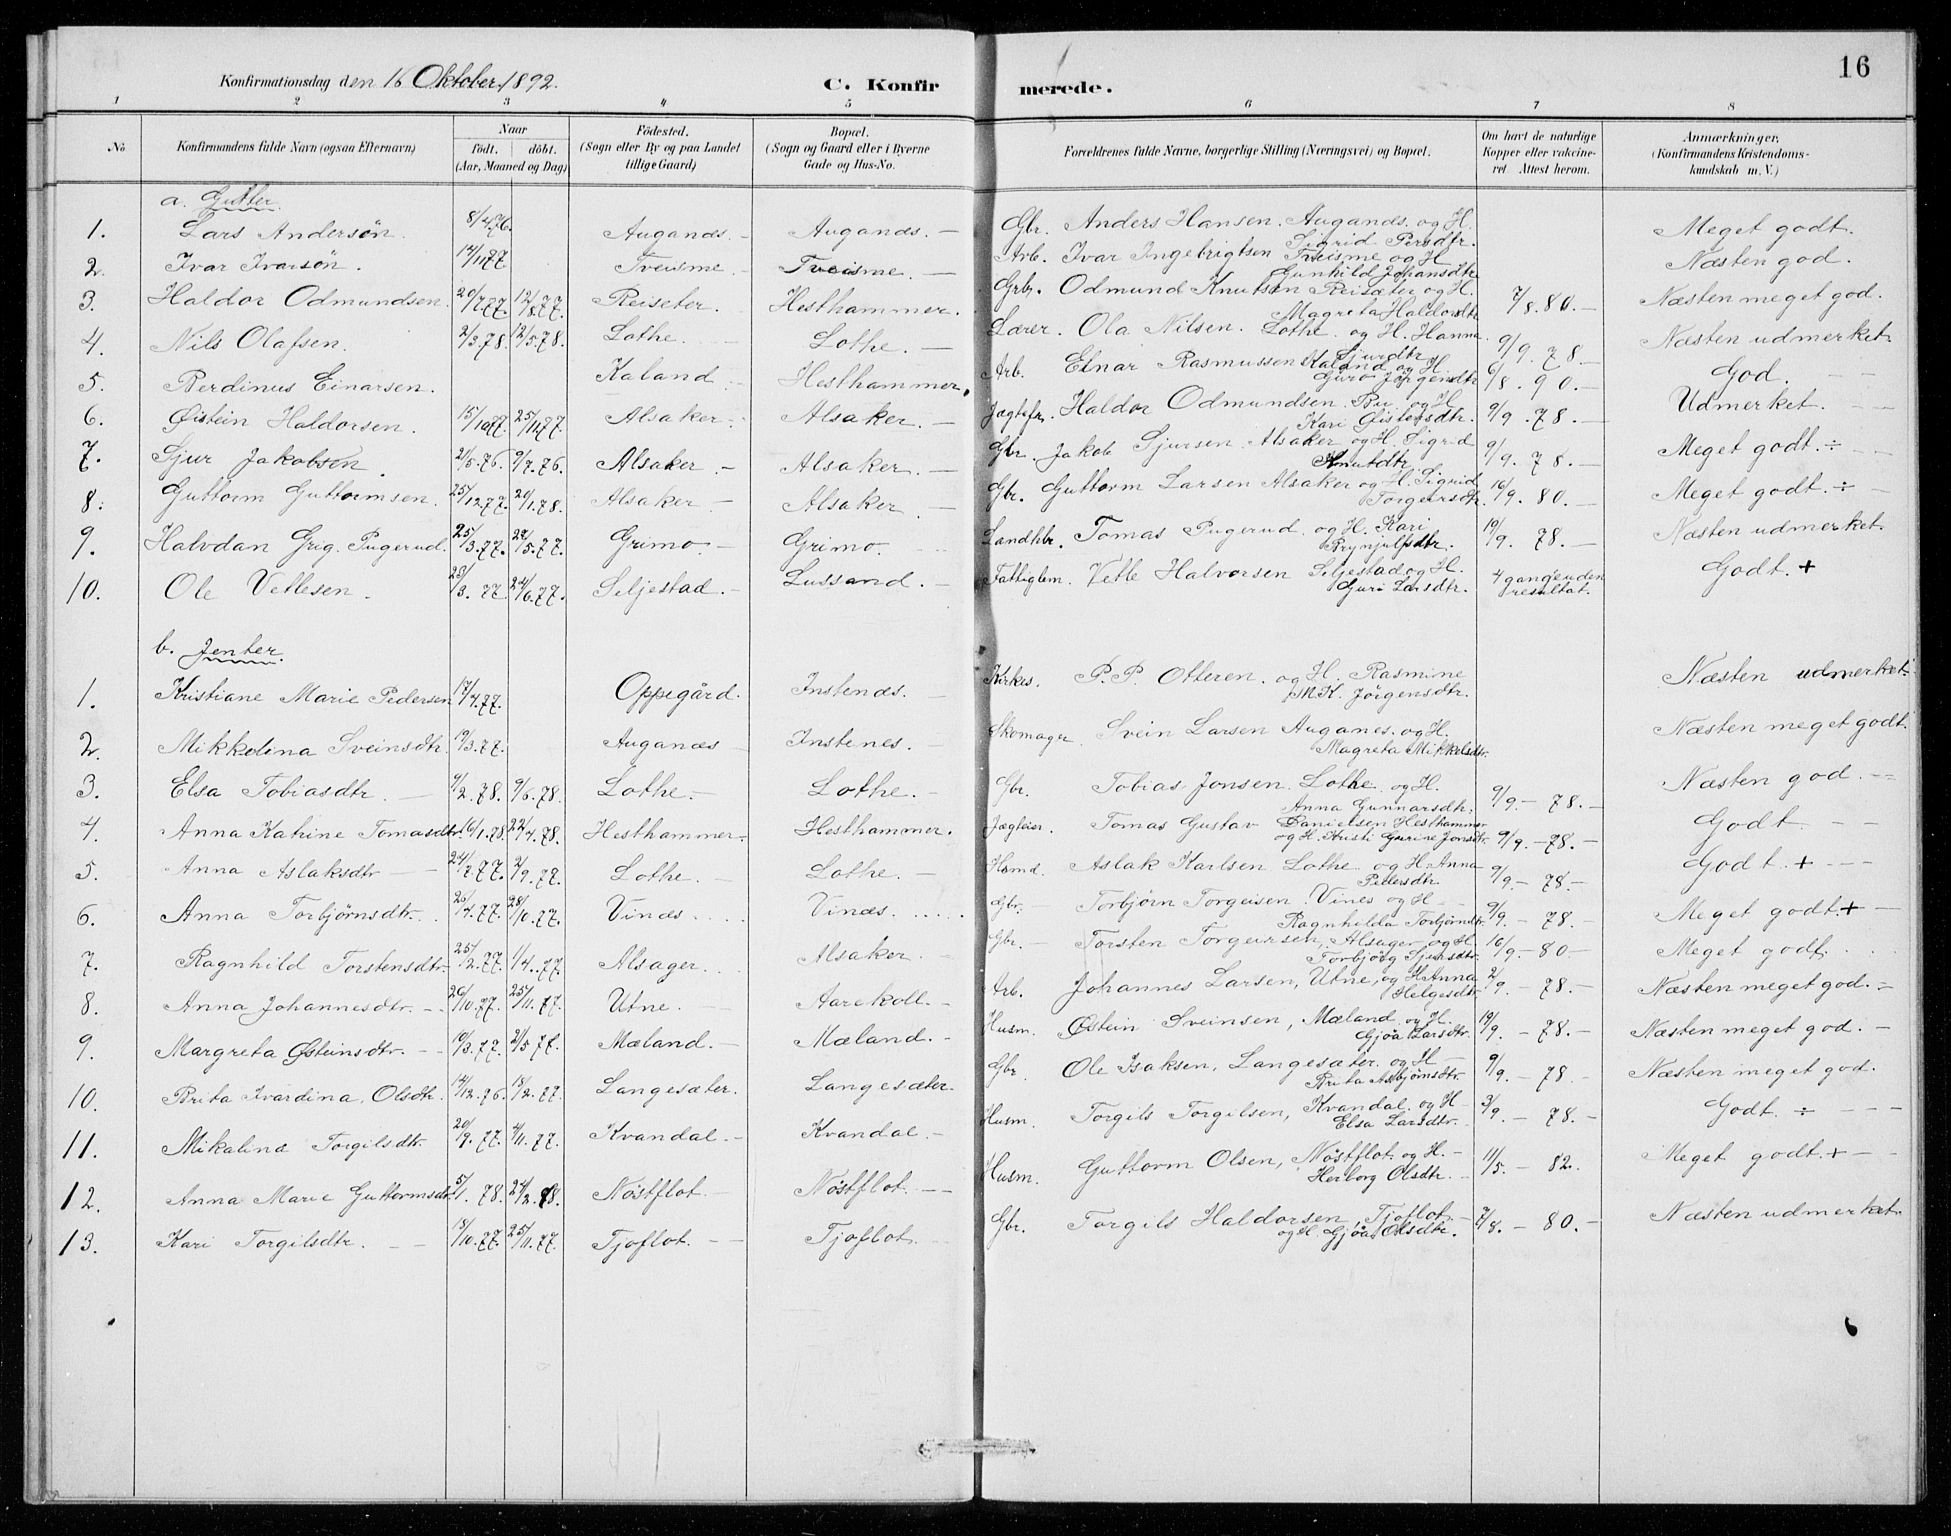 16
Konfirmationsdag den 16 Oktober 1892.
C. Konfirmerede.
1 2 3 4 5 6 7 8
No
Konfirmandens fulde Navn (ogsaa Efternavn)
Naar
födt. döbt.
(Aar, Maaned og Dag)
Födested.
(Sogn eller By og paa Landet
tillige Gaard)
Bopæl.
(Sogn og Gaard eller i Byerne
Gade og Hus-No.
Forældrenes fulde Navne, borgerlige Stilling (Næringsvei) og Bopæl.
Om havt de naturlige
Kopper eller vakcine-
ret. Attest herom.
Anmærkninger,
(Konfirmandens Kristendoms-
kundskab m. V.)
a. Gutter.
1. Lars Andersön. 8/4.76. Auganæs. – Auganæs. – Gbr. Anders Hansen. Auganæs. og H. Sigrid Persdtr. Meget godt.
2. Ivar Ivarsön. 14/11.77 Tveisme. – Tveisme. – Arb. Ivar Ingebrigtsen Tveisme og H. Gunhild Johansdtr. Næsten god.
3. Haldor Odmundsen. 20/7.77. 12/8.77. Reiseter. Hesthammer. Grbr. Odmund Knutsen Reisæter og H. Magreta Haldorsdtr 7/8. 80. – Næsten meget god.
4. Nils Olafsen. 2/3.78. 12/5.78. Lothe. Lothe. – Lærer. Ola Nilsen. Lothe og H. Hanna Sjurdtr 9/9. 78. – Næsten udmerket.
5. Berdinus Einarsen. Kaland. – Hesthammer. Arb. Einar Rasmussen Kaland og H Guro Jörgensdtr 6/8. 90. – God.
6. Øistein Haldorsen. 15/10.77. 25/11.77. Alsaker. – Alsaker. – Jægtefr. Haldor Odmundsen. Bu. og H. Kari Øistensdtr. 9/9. 78. – Udmerket.
7. Sjur Jakobsen. 2/5.76. 9/7.76. Alsaker. – Alsaker. – Gbr. Jakob Sjursen. Alsaker og H. Sigrid Knutdtr 9/9. 78. – Meget godt. ÷
8. Guttorm Guttormsen. 25/12.77. 20/1.78. Alsaker – Alsaker. – Gbr. Guttorm Larsen Alsaker og H. Sigrid Torgeirsdtr. 16/9. 80. – Meget godt. ÷ –
9. Halvdan Grig. Pugerud. 25/3.77. 22/5.77. Grimo. – Grimo. Landhbr. Tomas Pugerud. og H. Kari Brynjulfsdtr. 19/9. 78. – Næsten udmerket.
10. Ole Vetlesen. 23/3. 77 24/6.77. Seljestad. – Lussand. – Fattiglem. Vetle Halvorsen Seljestad og H. Guri Larsdtr. 4 gange uden resultat. Godt. +
b. Jenter.
1. Kristiane Marie Pedersen 17/4.77. Oppegård. Instenæs. – Kirkes. P. P. Otteren. og H. Rasmine M.K. Jörgensdtr. Næsten udmerket.
2. Mikkelina Sveinsdtr. 19/3.77. Auganæs – Instenes. Skomager Svein Larsen Auganes. og H. Magreta Mikkelsdtr. Næsten meget godt.
3. Elsa Tobiasdtr. – 9/2.78. 9/6.78. Lothe. – Lothe. – Gbr. Tobias Jonsen. Lothe. og H. Anna Gunnarsdtr. 9/9. – 78. – Næsten god. –
4. Anna Katrine Tomasdtr. 16/1.78. 22/4.78. Hesthammer. – Hesthammer. Jægteier. Tomas Gustav Danielsen Hesthammer og H. Kristi Gurine Jonsdtr. 9/9. – 78. – Godt. –
5. Anna Aslaksdtr – 24/7.77. 2/9.77. Lothe. – Lothe. – Aslak Karlsen Lothe og H. Anna Pedersdtr 9/9. – 78. – Godt. + – – –
6. Anna Torbjørnsdtr. 28/10.77. Vinæs . . . . Vinæs . . . . . Gbr. Torbjörn Torgeisen. Vines og H Ragnhilda Torbjørndtr. 9/9. – 78. – Meget godt. + –
7. Ragnhild Torstensdtr. 25/2.77. 1/4.77. Alsager. . Alsaker. – Gbr. – Torsten Torgeirsen, Alsager og H. Torbjörg Sjursdtr. 16/9. – 80. – Meget godt. .
8. Anna Johannesdtr. – 26/10.77. 25/11.77. Utne. Aarekoll. – Arb. Johannes Larsen, Utne, og H Anna Helgesdtr. 2/9. – 78. – Næsten meget god. –
9. Margreta Østeinsdtr. – 10/3.77. 21/5.77. Mæland. – Mæland. – Husm. Østein Sveinsen, Mæland og H. Gjöa Larsdtr. 19/9. – 78. – Næsten meget god. –
10. Brita Ivardina Olsdtr. 14/12.76. 18/2.77. Langesæter. Langesæter. Gbr. Ole Isaksen, Langesæter. og H – Brita Asbjørnsdtr. 9/9. – 78 – Næsten meget god.
11. Mikalina Torgilsdtr. 20/9.77. 4/11.77. Kvandal. – Kvandal. – Husm. Torgils Torgilsen, Kvandal. og H – Elsa Larsdtr. 3/9. – 78. – Godt. ÷ – – –
12. Anna Marie Guttormsdtr. 5/1.78. 24/2.78. Nöstflot. – Nöstflot. – – Husm. Guttorm Olsen, Nöstflot. og H. – Herborg Olsdtr. – 11/5. – 82. Meget godt. + – –
13. Kari Torgilsdtr. – – 13/10.77. 25/11.77. Tjoflot. – – Tjoflot. Gbr. Torgils Haldorsen, Tjoflot. – og H. Gjöa Olsdtr. 7/8. – 80. – Næsten udmerket.